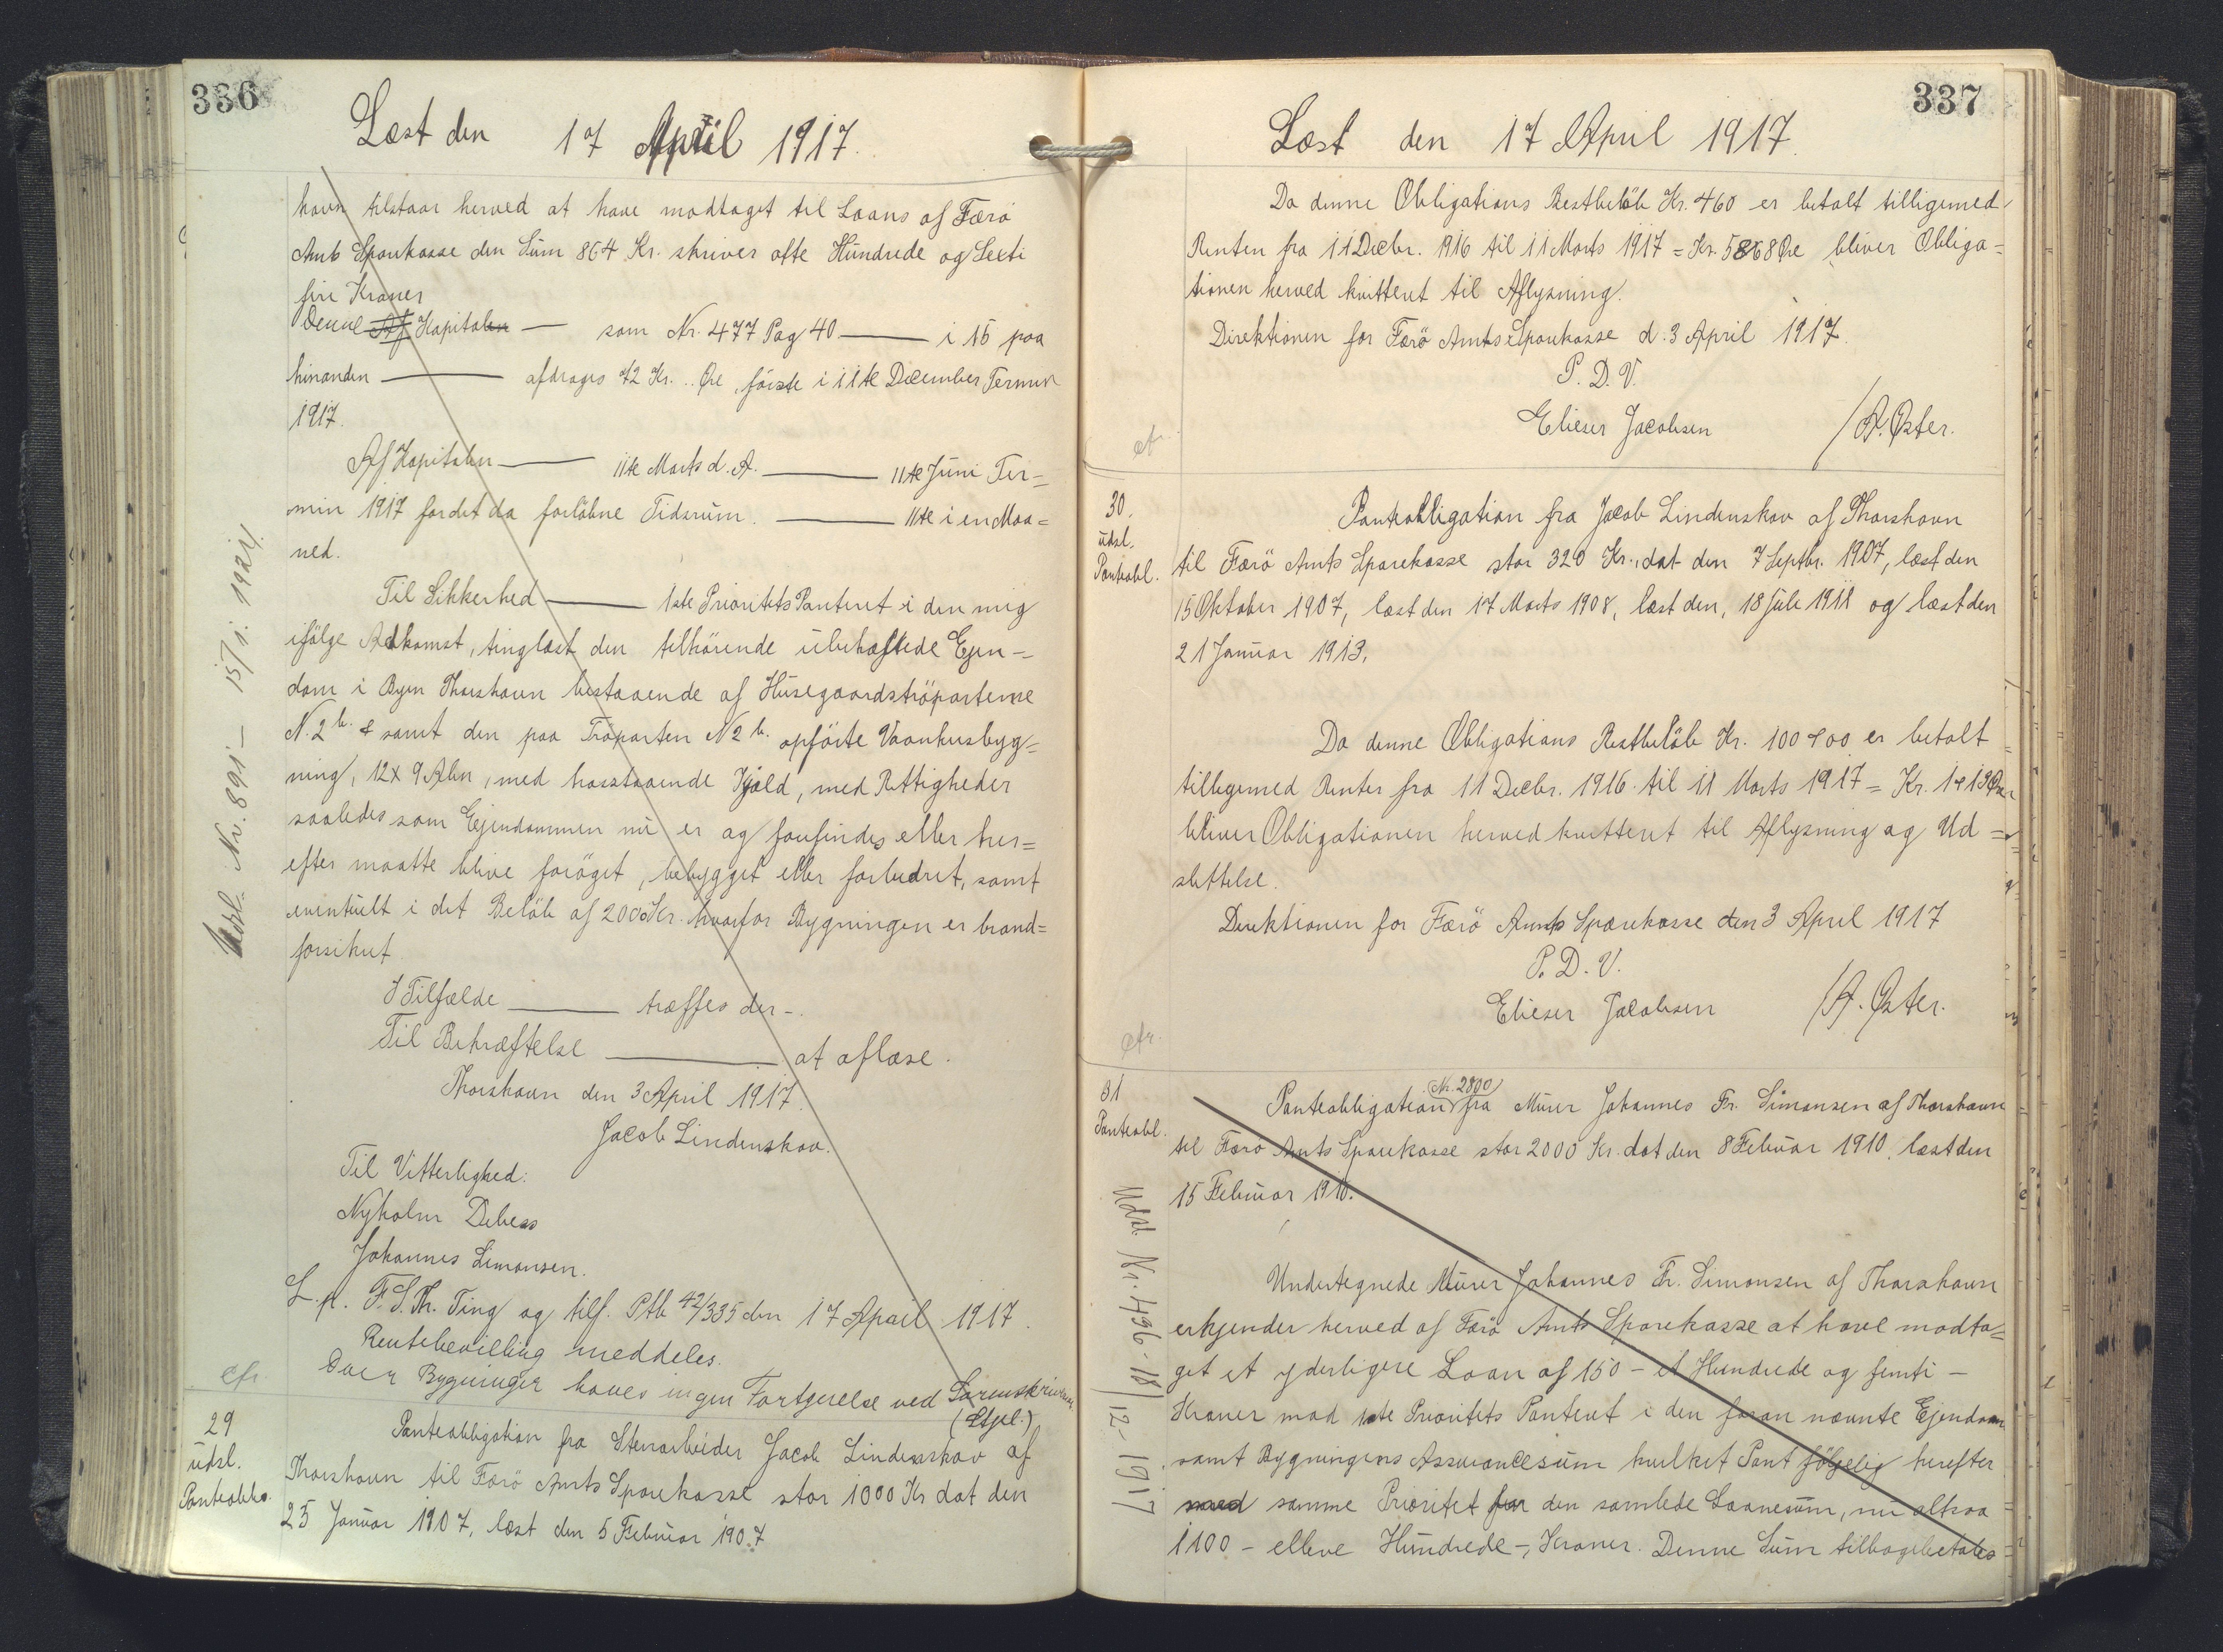 336
Læst den 17 April 1917.
havn tilstaar herved at have modtaget til Laans af Færö
Amts Sparekasse den Sum 864 Kr. skriver otte Hundrede og Sexti
fire Kroner
Denne Af Kapitalen — som Nr. 477 Pag 40 — i 15 paa
hinanden — afdrages 72 Kr. .. Øre, förste i 11te December Termin
1917.
Af Kapitalen — 11te Marts d. A. — 11te Juni Ter=
min 1917 for det da forlöbne Tidsrum. — 11te i en Maa=
ned.
Til Sikkerhed — 1ste Prioritets Panteret i den mig
ifölge Adkomst, tinglæst den tilhörende ubehæftede Ejen=
dom i Byen Thorshavn bestaaende af Husegaardströparterne
N. 2 b. & samt den paa Tröparten N 2 b. opförte Vaanhusbyg=
ning, 12 x 9 Alen, med hosstaaende Kjæld, med Rettigheder
saaledes som Ejendommen nu er og forefindes eller her=
efter maatte blive foröget, bebygget eller forbedret, samt
eventuelt i det Belöb af 2000 Kr. hvorfor Bygningen er brand=
forsikret.
I Tilfælde — træffes der -.
Til Bekræftelse — at aflæse.
Thorshavn den 3 April 1917.
Jacob Lindenskov.
Til Vitterlighed:
Nyholm Debess
Johannes Simonsen.
L. p. F. S. Th. Ting og tilf. Ptb 42/335 den 17 April 1917.
Rentebevilling meddeles.
Over Bygninger haves ingen Fortegnelse ved Sorenskriveren.
(Stpl.)
Udsl. Nr. 891 — 15/1. 1921.
cfr.
29
udsl.
Panteobl.
Panteobligation fra Stenarbeider Jacob Lindenskov af
Thorshavn til Færö Amts Sparekasse stor 1000 Kr dat den
25 Januar 1907, læst den 5 Februar 1907
337
Læst den 17 April 1917.
Da denne Obligations Restbelöb Kr. 460 er betalt tilligemed
Renten fra 11 Decbr. 1916 til 11 Marts 1917 = Kr. 5 68 Øre bliver Obliga=
tionen herved kvitteret til Aflysning.
Direktionen for Færö Amts Sparekasse d. 3 April 1917.
P. D. V.
Elieser Jacobsen /A. Øster.
cfr.
30.
udsl.
Panteobl.
Panteobligation fra Jacob Lindenskov af Thorshavn
til Færö Amts Sparekasse stor 320 Kr., dat den 7 Septbr. 1907, læst den
15 Oktober 1907, læst den 17 Marts 1908, læst den, 18 Juli 1911 og læst den
21 Januar 1913.
Da denne Obligations Restbelöb Kr. 100 " 00 er betalt
tilligemed Renter fra 11 Decbr. 1916 til 11 Marts 1917 = Kr. 1 " 13 Øre
bliver Obligationen herved kvitteret til Aflysning og Ud=
slettelse.
Direktionen for Færö Amts Sparekasse den 3 April 1917
P. D. V.
Elieser Jacobsen /A. Øster.
cfr.
31
Panteobl.
Panteobligation (Nr. 2800) fra Murer Johannes Fr. Simonsen af Thorshavn
til Færö Amts Sparekasse stor 2000 Kr. dat den 8 Februar 1910, læst den
15 Februar 1910.
Udsl. Nr. 496 - 18/12 - 1917
Undertegnede Murer Johannes Fr. Simonsen af Thorshavn
erkjender herved af Færö Amts Sparekasse at have modta=
get et yderligere Laan af 150 - et Hundrede og femti -
Kroner mod 1ste Prioritets Panteret i den foran nævnte Ejendom
samt Bygningens Assurancesum hvilket Pant fölgelig herefter
med samme Prioritet for den samlede Laanesum, nu altsaa
1100 - elleve Hundrede -, Kroner. Denne Sum tilbagebetales